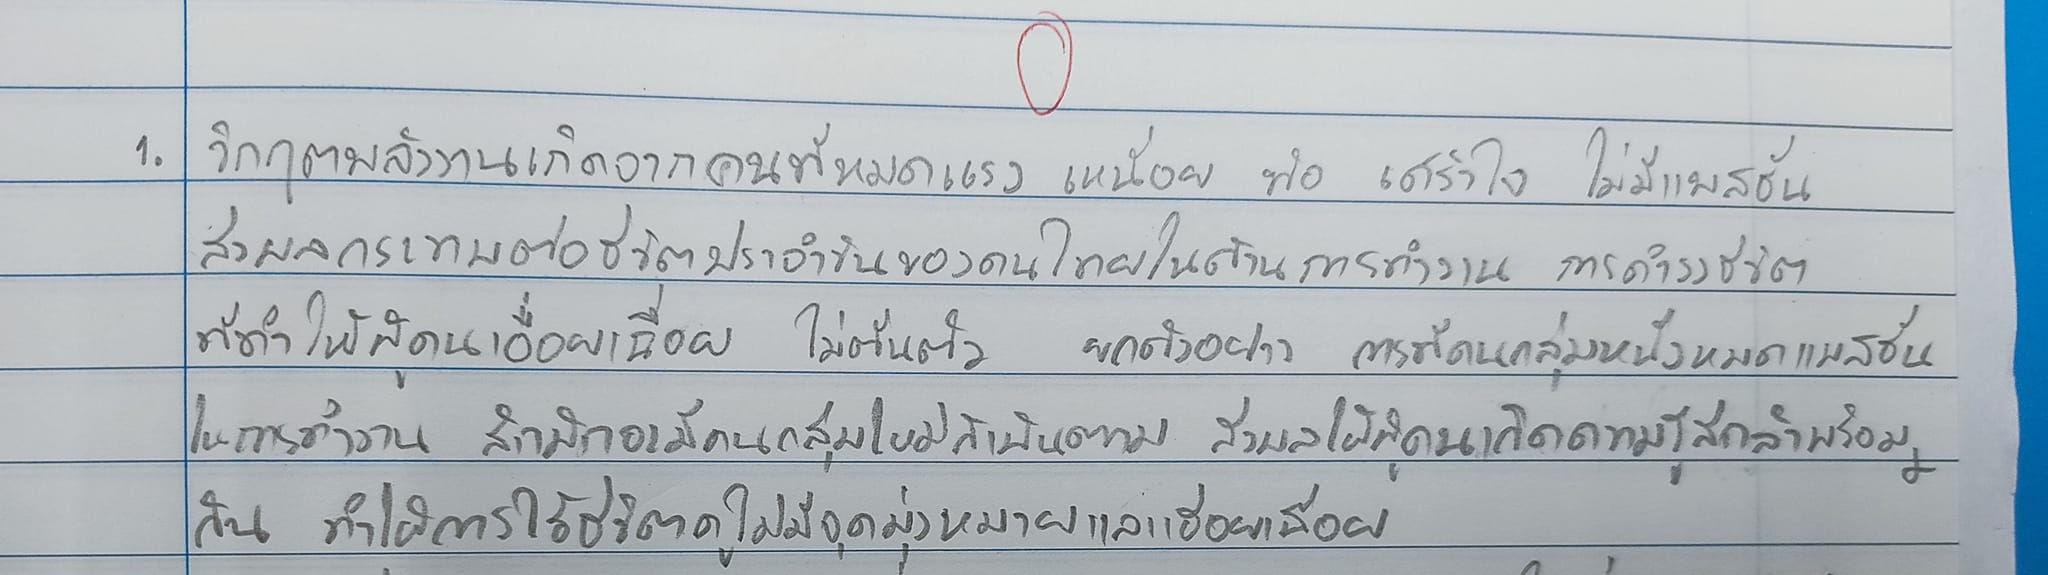 1. วิกฤตพลังงานเกิดจากคนที่หมดแรง เหนื่อย ท้อ เศร้าใจ ไม่มีแพสชั่น
ส่งผลกระทบต่อชีวิตประจำวันของคนไทยในด้านการทำงาน การดำรงชีวิต
ที่ทำให้ผู้คนเอื่อยเฉื่อย ไม่ตื่นตัว ยกตัวอย่าง การที่คนกลุ่มหนึ่งหมดแพสชั่น
ในการทำงาน สักพักจะมีคนกลุ่มใหม่ที่เป็นตาม ส่งผลให้ผู้คนเกิดความรู้สึกล้าพร้อมๆ
กัน ทำให้การใช้ชีวิตดูไม่มีจุดมุ่งหมายและเอื่อยเฉื่อย